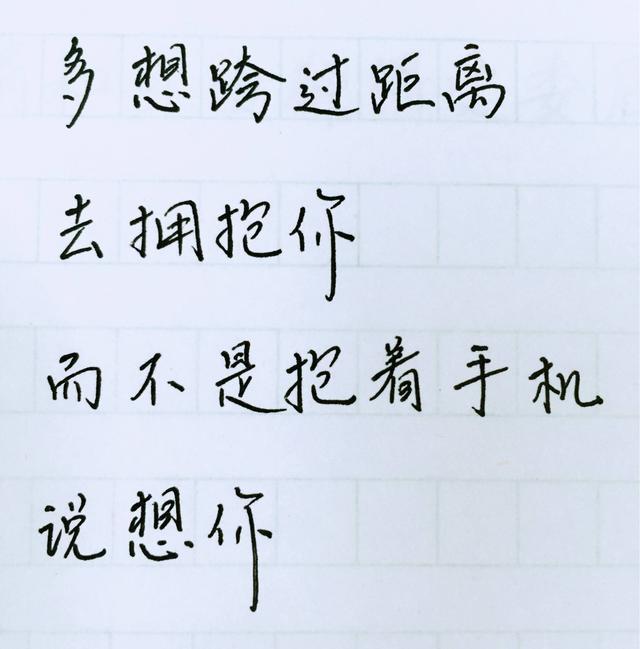 多想跨过距离
去拥抱你
而不是抱着手机
说想你